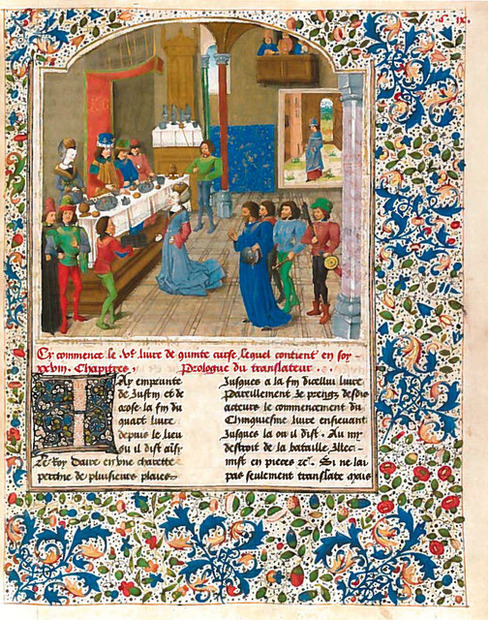 Cy commence le .Ve. livre de quinte curse, lequel contient en soy
xxviii. Chapitres, Prologue du translateur . .
Jay emprunte
de Justin et de
arose la fin du
quart livre
depuis le lieu
ou il dist aisi
Le Roy daire en une charette
percine de plusieurs places
Jusques a la fin dicellui livre
Pareillement Je prengz desdis
acteurs le commencement du
Chinquiesme livre ensievant
Jusques la ou il dist . Au
destroit de la bataille
mist en pieces zc. Si ne lai
pas seulement translate mais